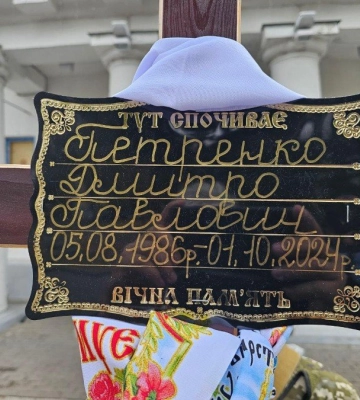 ТУТ СПОЧИВАЄ
Петренко
Дмитро
Павлович
05.08.1986р-01.10.2024р
ВІЧНА ПАМ'ЯТЬ